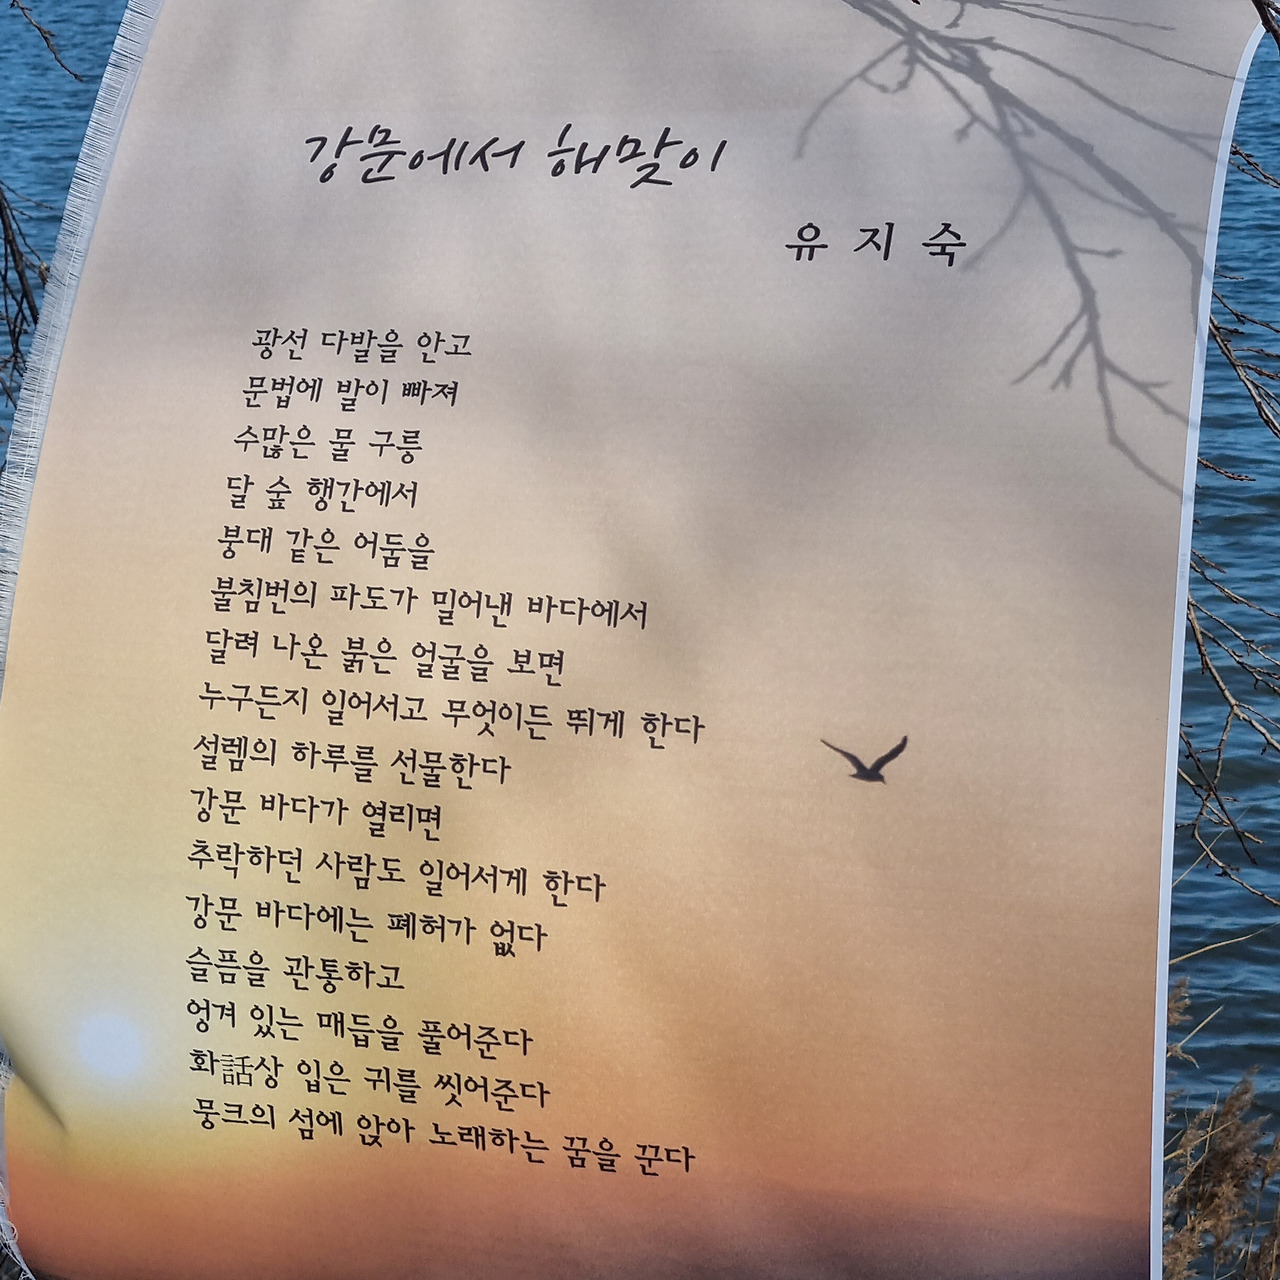 강문에서 해맞이
유 지 숙
광선 다발을 안고
문법에 발이 빠져
수많은 물 구릉
달 숲 행간에서
붕대 같은 어둠을
불침번의 파도가 밀어낸 바다에서
달려 나온 붉은 얼굴을 보면
누구든지 일어서고 무엇이든 뛰게 한다
설렘의 하루를 선물한다
강문 바다가 열리면
추락하던 사람도 일어서게 한다
강문 바다에는 폐허가 없다
슬픔을 관통하고
엉겨 있는 매듭을 풀어준다
화話상 입은 귀를 씻어준다
뭉크의 섬에 앉아 노래하는 꿈을 꾼다